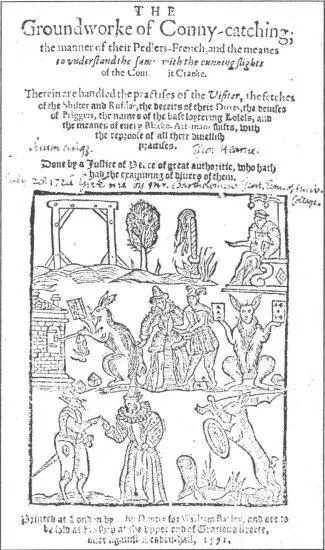 THE
Groundworke of Conny-catching;
the manner of their Pedlers-French, and the meanes
to understand the same with the cunning slights
of the Coun it Cranke.
Therein are handled the practises of the Visiter, the fetches
of the Shifter and Rufflar, the deceits of their Doxes, the devises
of Priggers, the names of the base loytering Losels, and
the meanes of every Blacke-Art-mans shifts, with
the reproofe of all their divellish
practises.
Tho: Hearne.
Done by a Justice of Peace of great authoritie, who hath
had the examining of divers of them.
July 20 1724 Give me by Mr. Bartholomew
College
Printed at London by John Danter for William Barley, and are to
be sold at his shop at the upper end of Gratious streete,
over against Leaden-hall, 1592.